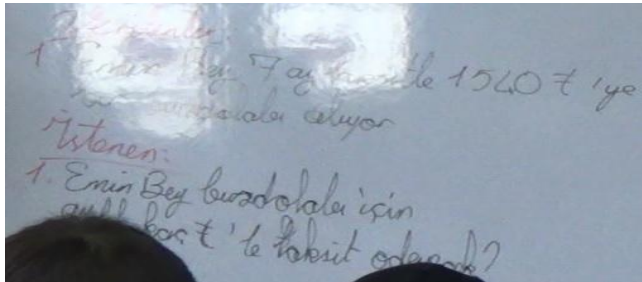 Verilenler:
1. Emin Bey, 7 ay taksitle 1540 ₺'ye
buzdolabı alıyor
İstenen:
1. Emin Bey buzdolabı için
aylık kaç ₺'lik taksit ödeyecek?